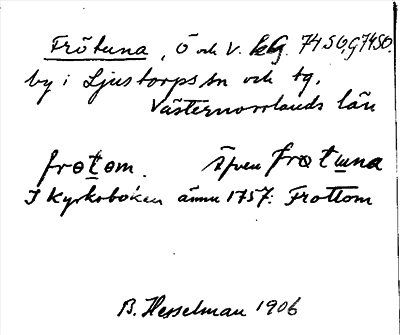 Frötuna, Ö och V. kg. 74 SO, G74SO.
by i Ljustorps sn och tg.
Västernorrlands län
frøtom. Äfven frøtuna
I kyrkoboken ännu 1757: Frottom
B. Hesselman 1906